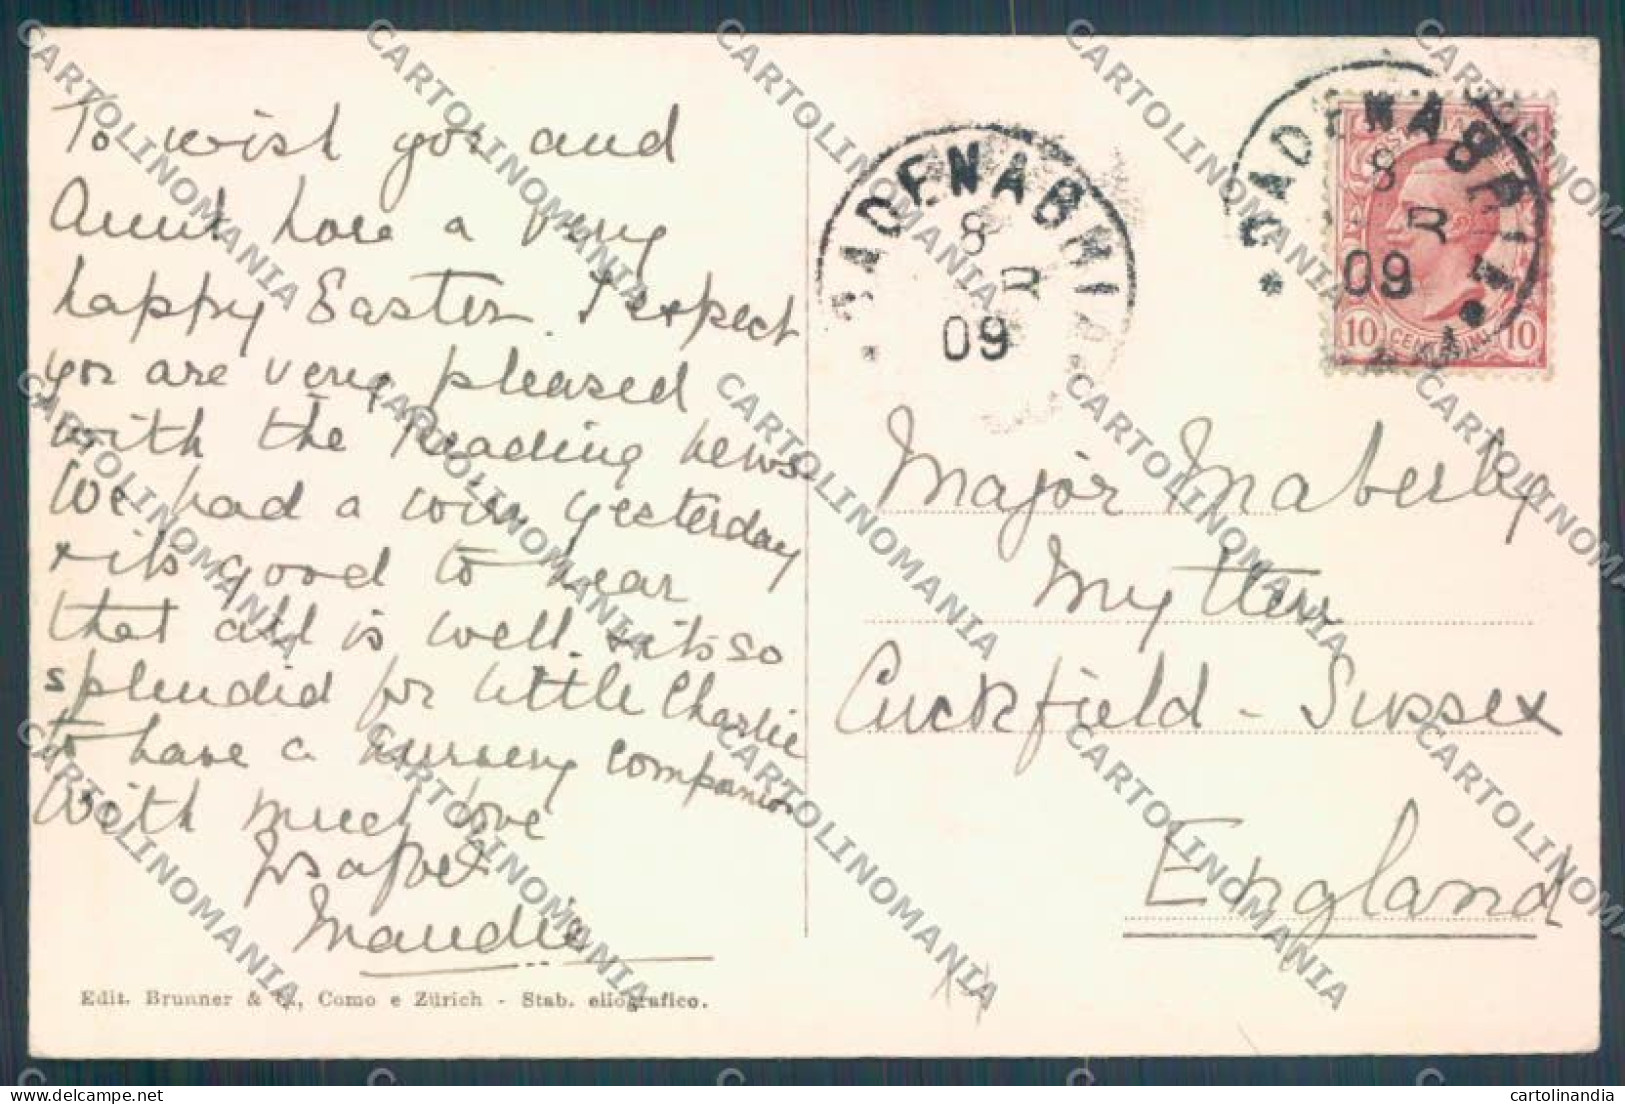 To wish you and
Aunt           a very
happy Easter. I expect
you are very pleased
with the Reading news
We had a wire yesterday
+ its good to hear
that all is well. + its so
splendid for little Charlie
to have a nursery companion
With much love
Isabel
Maudie
Edit. Brunner & C., Como e Zürich - Stab. eliografico.
CADENABBIA
8
09
CADENABBIA
8
09
10 CENTESIMI 10
Major Maberly
Mytten
Cuckfield - Sussex
England
CARTOLINOMANIA
cartolinandia